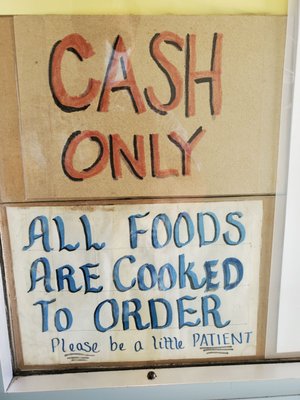 CASH
ONLY
ALL FOODS
ARE COOKED
TO ORDER
Please be a little PATIENT